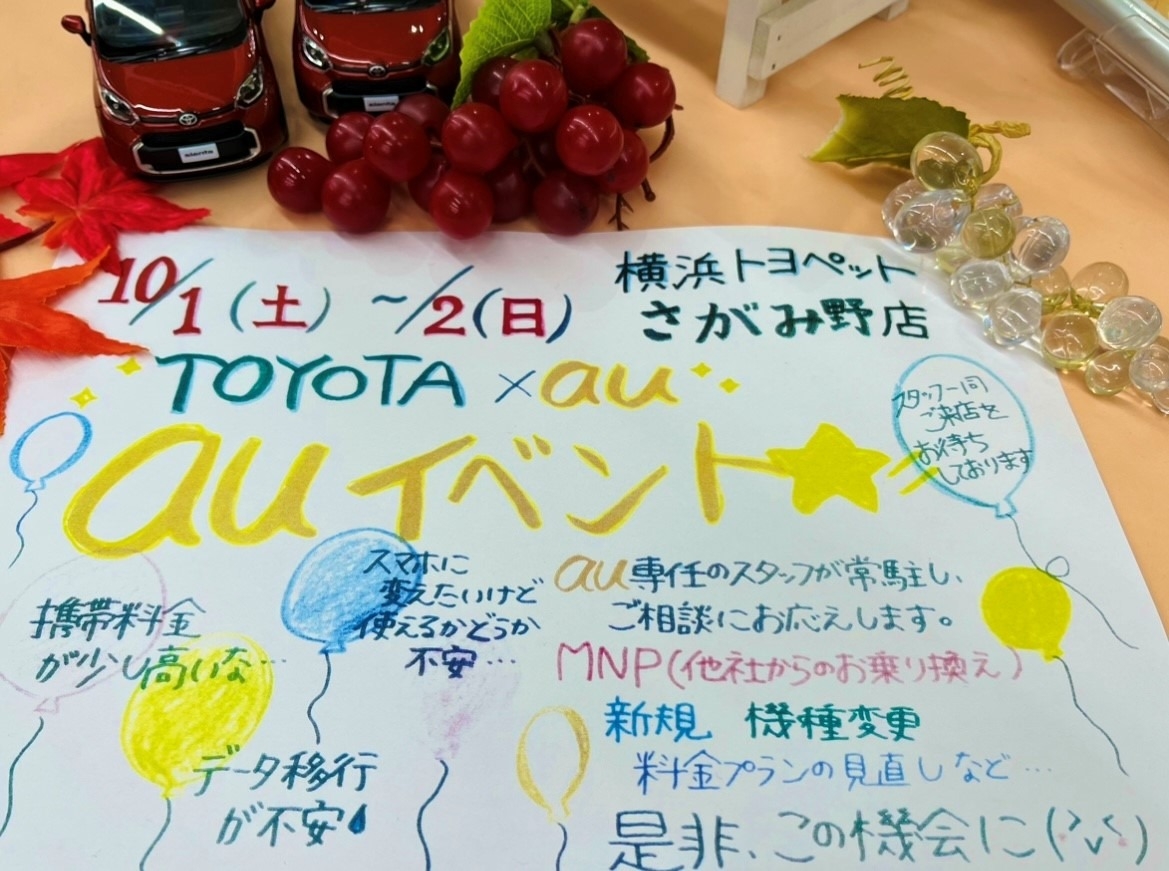 sienta
sienta
10/1(土)~/2(日)
横浜トヨペット
さがみ野店
TOYOTA×au
auイベント
スタッフ一同
ご来店を
お待ち
しております
スマホに
変えたいけど
使えるかどうか
不安…
携帯料金
が少し高いな…
データ移行
が不安
au専任のスタッフが常駐し、
ご相談にお応えします。
MNP(他社からのお乗り換え)
新規 機種変更
料金プランの見直しなど…
是非、この機会に('v')